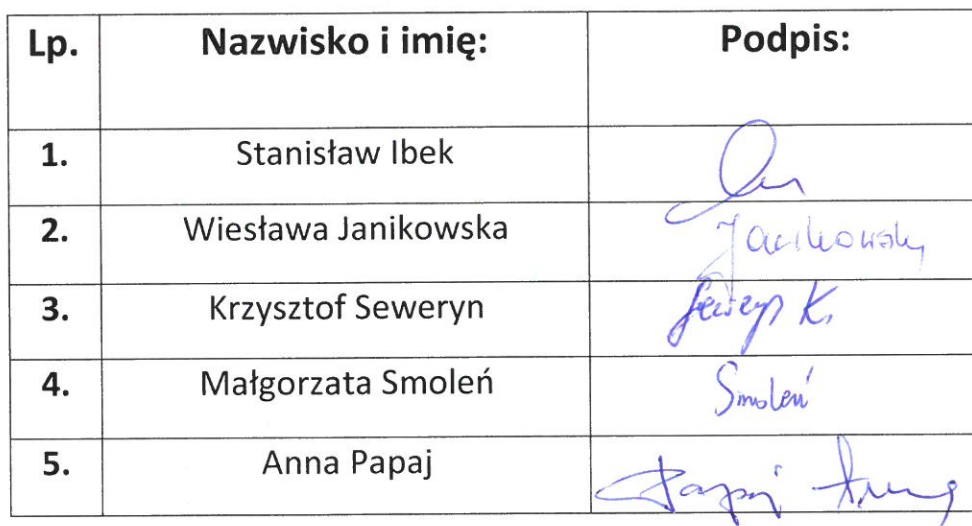 Lp. Nazwisko i imię: Podpis:
1. Stanisław Ibek
2. Wiesława Janikowska Janikowska
3. Krzysztof Seweryn Seweryn K.
4. Małgorzata Smoleń Smoleń
5. Anna Papaj Papaj Anna